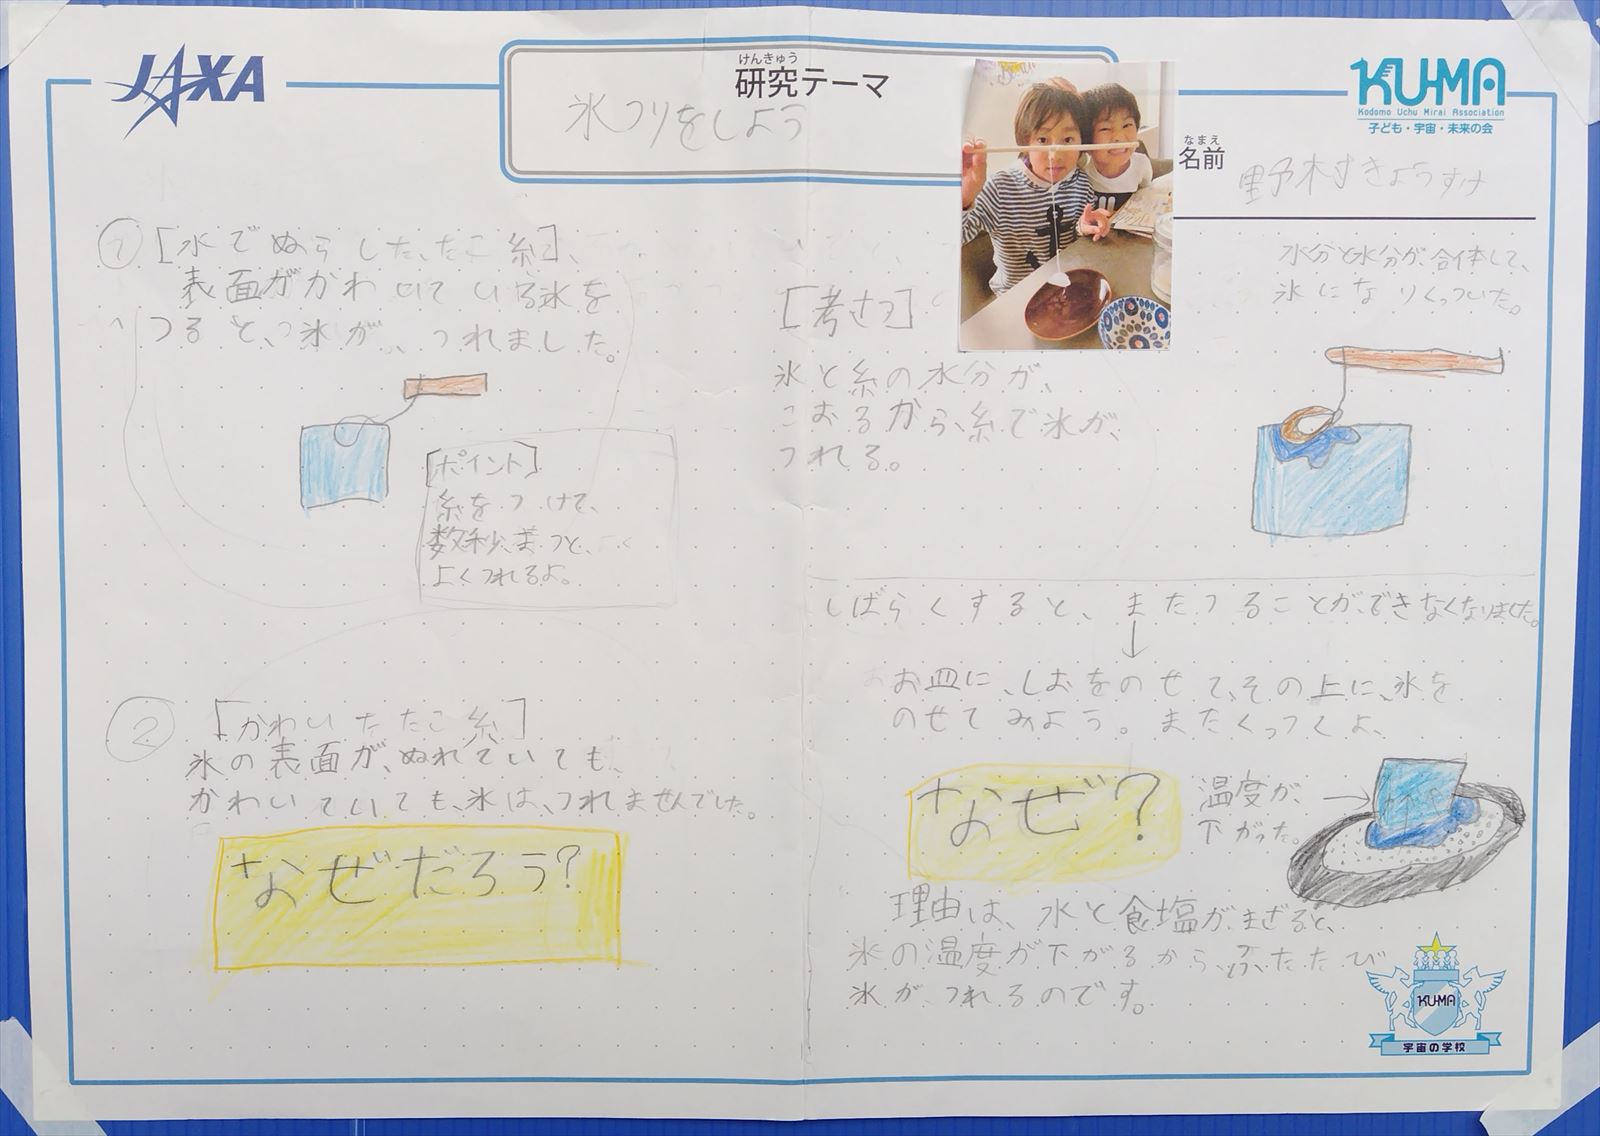 JAXA
けんきゅう
研究テーマ
氷つりをしよう
KU-MA
Kodomo Uchu Mirai Association
子ども・宇宙・未来の会
なまえ
名前
野村きょうすけ
① [水でぬらした、たこ糸]、
表面がかわいている氷を
つると、氷が、つれました。
[ポイント]
糸をつけて、
数秒、まつと、
よくつれるよ。
② [かわいたたこ糸]
氷の表面が、ぬれていても、
かわいていても、氷は、つれませんでした。
なぜだろう?
[考さつ]
氷と糸の水分が、
こおるから、糸で氷が、
つれる。
水分と水分が、合体して、
氷になりくっついた。
しばらくすると、またつることが、できなくなりました。
↓
お皿に、しおをのせて、その上に、氷を
のせてみよう。またくっつくよ、
なぜ?
温度が、
下がった。
理由は、水と食塩がまざると、
氷の温度が下がるから、ふたたび
氷が、つれるのです。
KU-MA
宇宙の学校